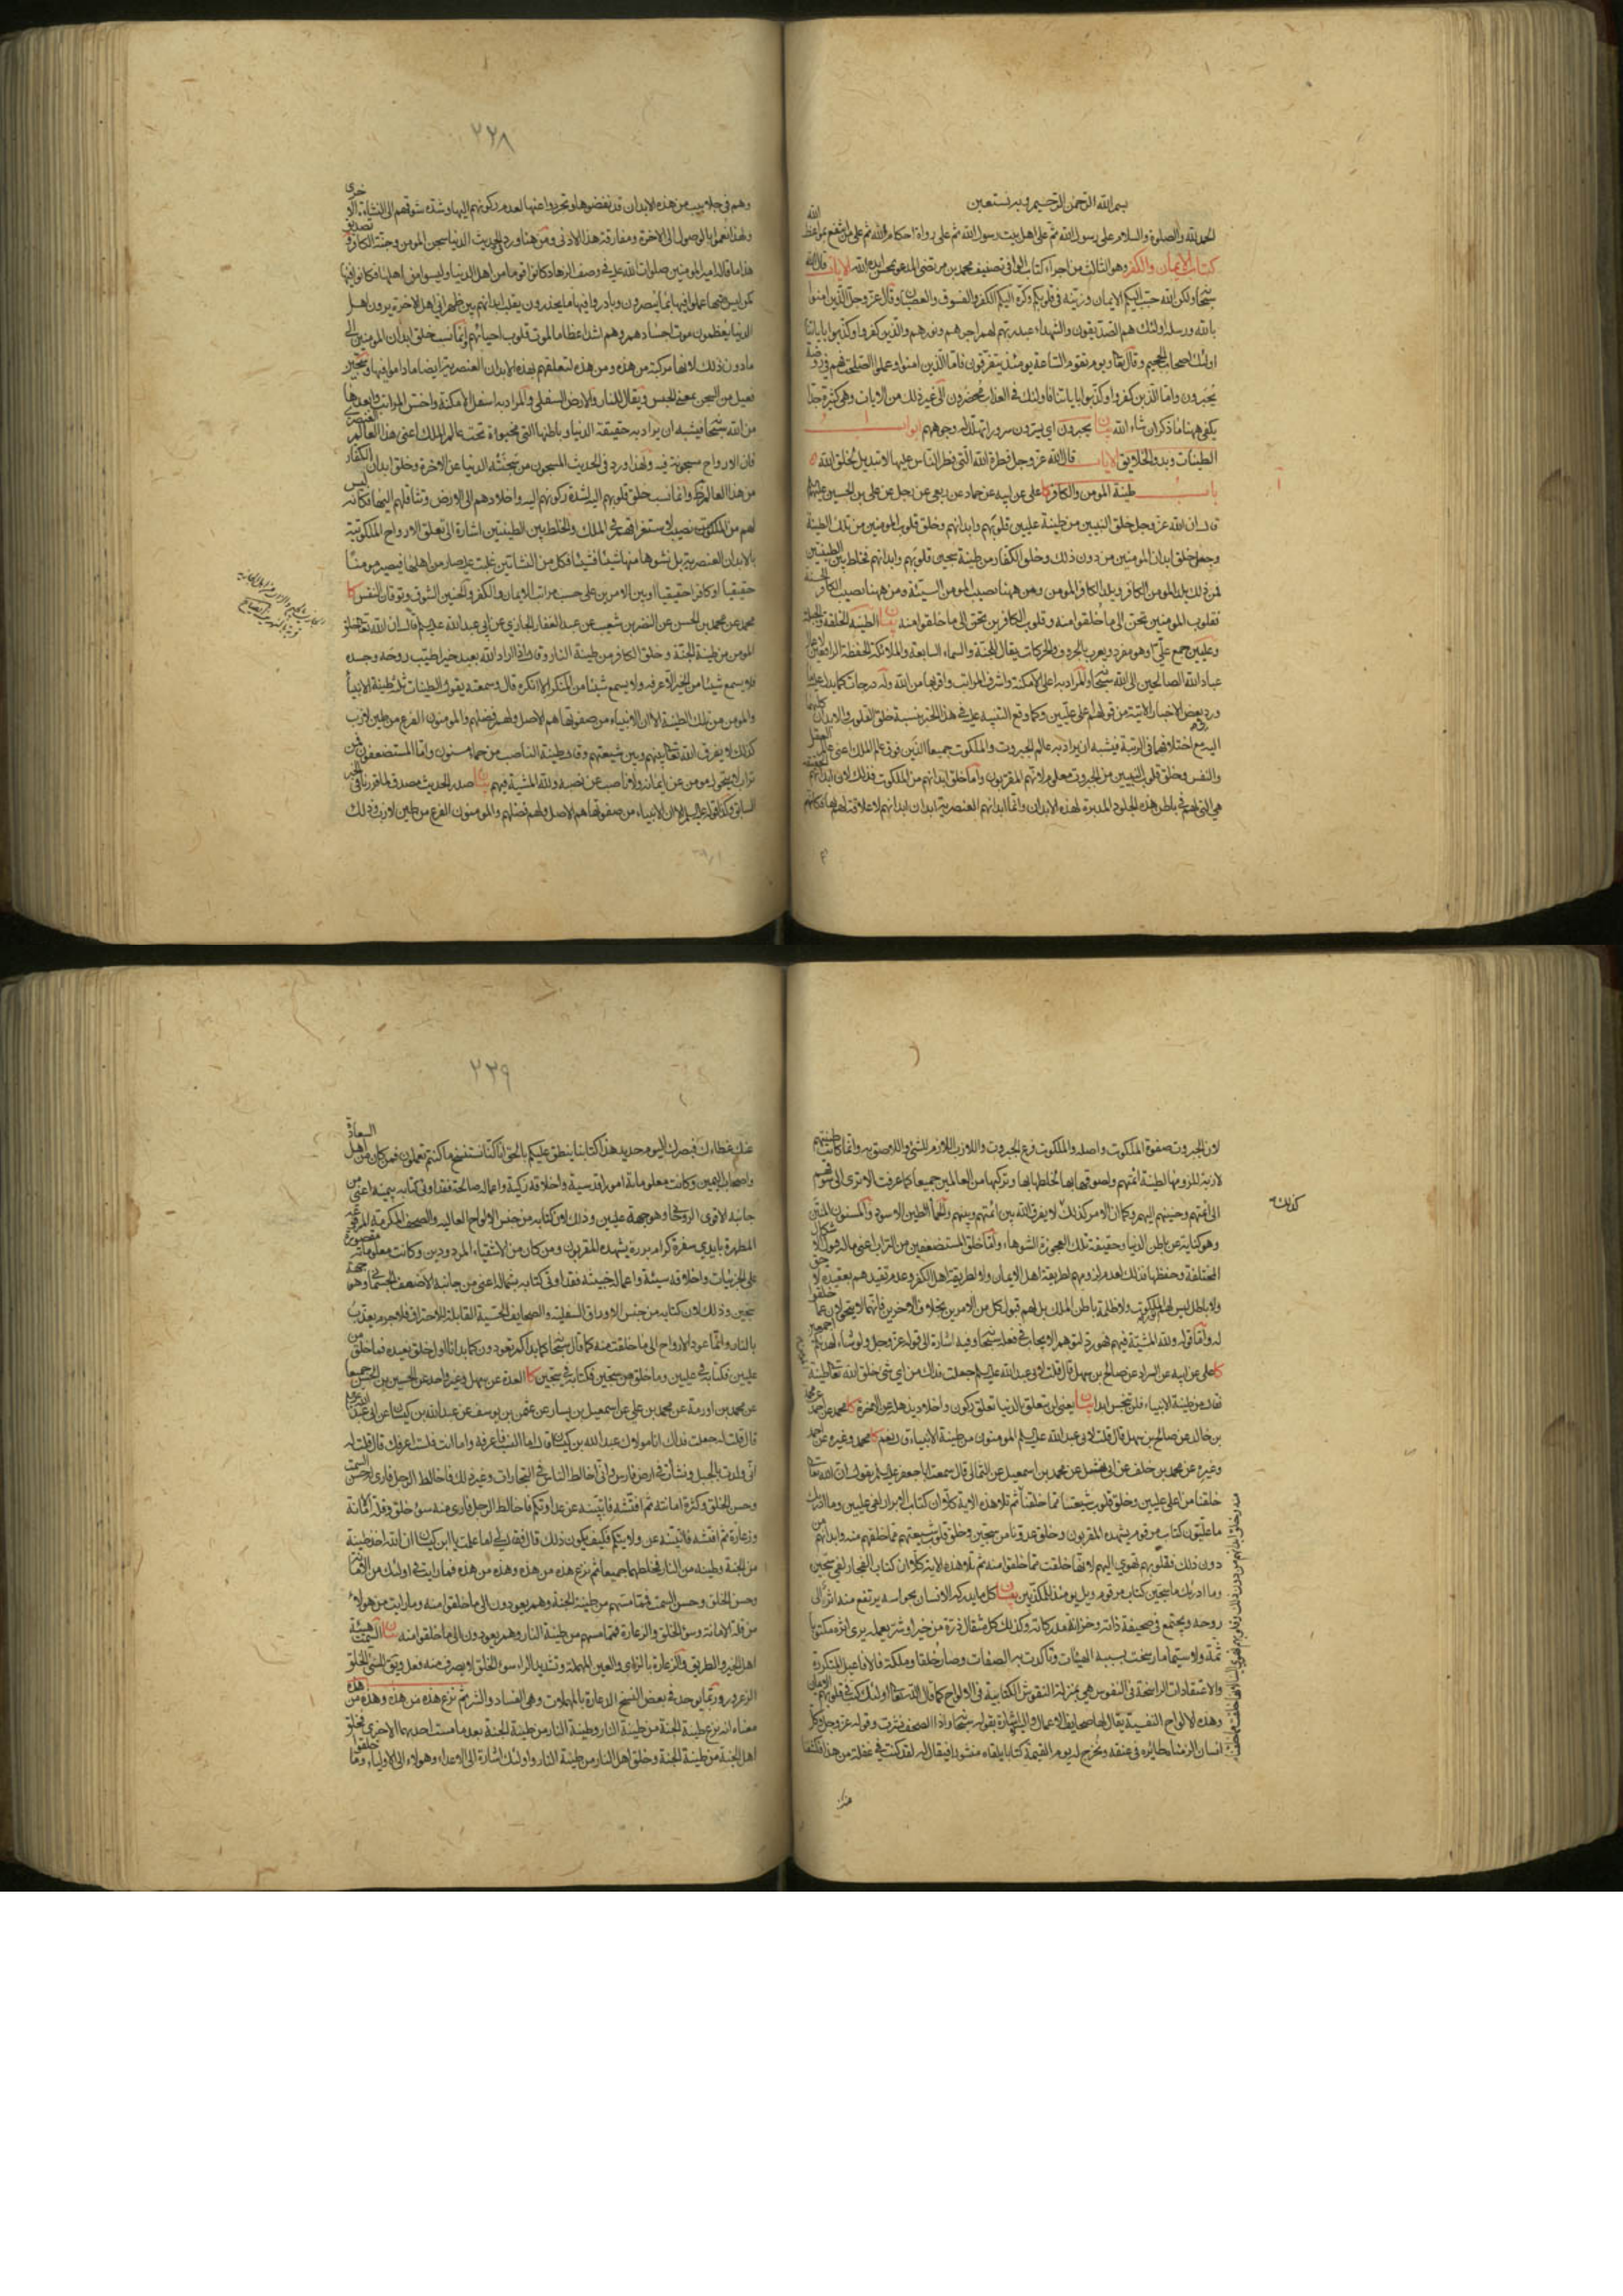 بسم الله الرحمن الرحيم وبه نستعين
الحمد لله والصلوة والسلام على رسول الله ثم على اهل بيت رسول الله ثم على رواة احكام الله ثم على من انتفع بمواعظ الله
كتاب الايمان والكفر وهو الثالث من اجزاء كتاب الوافي تصنيف محمد بن مرتضى المدعو بمحسن ايده الله الايات قال الله
سبحانه ولكن الله حبب اليكم الايمان وزينه في قلوبكم وكره اليكم الكفر والفسوق والعصيان وقال عز وجل والذين امنوا
بالله ورسله اولئك هم الصديقون والشهداء عند ربهم لهم اجرهم ونورهم والذين كفروا وكذبوا باياتنا
اولئك اصحاب الجحيم وقال تعالى ويوم تقوم الساعة يومئذ يتفرقون فاما الذين امنوا وعملوا الصالحات فهم في روضة
يحبرون واما الذين كفروا وكذبوا باياتنا فاولئك في العذاب محضرون الى غير ذلك من الايات وهي كثيرة جدا
يكفي ههنا ما ذكر ان شاء الله بيان يحبرون اي يسرون سرورا تهلل له وجوههم ابواب
الطينات وبدو الخلايق الايات قال الله عز وجل فطرة الله التي فطر الناس عليها لا تبديل لخلق الله
باب طينة المومن والكافر كا علي عن ابيه عن حماد عن ربعي عن رجل عن علي بن الحسين عليهما
قال ان الله عز وجل خلق النبيين من طينة عليين قلوبهم وابدانهم وخلق قلوب المومنين من تلك الطينة
وجعل خلق ابدان المومنين من دون ذلك وخلق الكفار من طينة سجين قلوبهم وابدانهم فخلط بين الطينتين
فمن ذلك يلد المومن الكافر ويلد الكافر المومن ومن ههنا يصيب المومن السيئة ومن ههنا يصيب الكافر الحسنة
فقلوب المومنين تحن الى ما خلقوا منه وقلوب الكافرين تحن الى ما خلقوا منه بيان الطينة الخلقة والجبلة
وعليين جمع علي او هو مفرد ويعرب بالحروف والحركات يقال للجنة والسماء السابعة والملائكة الحفظة الرافعين لاعمال
عباد الله الصالحين الى الله سبحانه والمراد به اعلى الامكنة واشرف المراتب واقربها من الله وله درجات كما يدل عليه ما
ورد في بعض الاخبار الاتية من قولهم اعلى عليين وكما وقع التنبيه عليه في هذا الخبر بنسبة خلق القلوب والابدان كليهما
اليه مع اختلافهما في الرتبة فيشبه ان يراد به عالم الجبروت والملكوت جميعا اللذين فوق عالم الملك اعني عالم العقل
والنفس وخلق قلوب النبيين من الجبروت معلوم لانهم المقربون واما خلق ابدانهم من الملكوت فذلك لان ابدانهم الحقيقية
هي التي لهم في باطن هذه الجلود المدبرة لهذه الابدان وانما ابدانهم العنصرية ابدان ابدانهم لا علاقة لهم بها فكانهم
٢٢٨
وهم في جلابيب من هذه الابدان قد نفضوها وتجردوا عنها لعدم ركونهم اليها وشدة شوقهم الى النشاة الاخرى
ولهذا نعموا بالوصول الى الاخرة ومفارقة هذا الادنى ومن هنا ورد في الحديث الدنيا سجن المومن وجنة الكافر وتصديق
هذا ما قاله امير المومنين صلوات الله عليه في وصف الزهاد كانوا قوما من اهل الدنيا وليسوا من اهلها فكانوا فيها
كمن ليس فيها عملوا فيها بما يبصرون وبادروا فيها ما يحذرون تقلب ابدانهم بين ظهراني اهل الاخرة يرون اهل
الدنيا يعظمون موت اجسادهم وهم اشد اعظاما لموت قلوب احيائهم وانما نسب خلق ابدان المومنين الى
ما دون ذلك لانها مركبة من هذه ومن هذه لتعلقهم بهذه الابدان العنصرية ايضا ما داموا فيها وسجين
فعيل من السجن بمعنى الحبس ويقال للنار والارض السفلى والمراد به اسفل الامكنة واخس المراتب وابعدها
من الله سبحانه فيشبه ان يراد به حقيقة الدنيا وباطنها التي هي مخبوة تحت عالم الملك اعني هذا العالم العنصري
فان الارواح مسجونة فيه ولهذا ورد في الحديث المسجون من سجنته الدنيا عن الاخرة وخلق ابدان الكفار
من هذا العالم ظاهر وانما نسب خلق قلوبهم اليه لشدة ركونهم اليه واخلادهم الى الارض وتثاقلهم اليها فكانه ليس
لهم من الملكوت نصيب لاستغراقهم في الملك والخلط بين الطينتين اشارة الى تعلق الارواح الملكوتية
بالابدان العنصرية بل نشوها منها شيئا فشيئا فكل من النشاتين غلبت عليه صار من اهلها فيصير مومنا
حقيقيا او كافرا حقيقيا او بين الامرين على حسب مراتب الايمان والكفر والحنين الشوق وتوقان النفس كا
محمد عن محمد بن الحسن عن النضر بن شعيب عن عبد الغفار الجازي عن ابي عبد الله عليه السلام قال ان الله تعالى خلق
المومن من طينة الجنة وخلق الكافر من طينة النار وقال اذا اراد الله بعبد خيرا طيب روحه وجسده
فلا يسمع شيئا من الخير الا عرفه ولا يسمع شيئا من المنكر الا انكره قال وسمعته يقول الطينات ثلاث طينة الانبيا
والمومن من تلك الطينة الا ان الانبياء من صفوتها هم الاصل ولهم فضلهم والمومنون الفرع من طين لازب
كذلك لا يفرق الله تعالى بينهم وبين شيعتهم وقال طينة الناصب من حما مسنون واما المستضعفون فمن
تراب لا يتحول مومن عن ايمانه ولا ناصب عن نصبه ولله المشية فيهم بيان صدر الحديث مصدق لما قررناه في الخبر
السابق وكذا قوله عليه السلم الا ان الانبياء من صفوتها هم الاصل ولهم فضلهم والمومنون الفرع من طين لازب وذلك
لان الجبروت صفوة الملكوت واصله والملكوت فرع الجبروت واللازب اللازم للشئ واللاصق به وانما كانت طينتهم
لازبة للزومها لطينة ائمتهم ولصوقها بها لخلطها بها وتركبها من العالمين جميعا كما عرفت الا ترى الى شوقهم
الى ائمتهم وحنينهم اليهم وكما ان الامر كذلك لا يفرق الله بين ائمتهم وبينهم والحما الطين الاسود والمسنون المنتن
كذلك
وهو كناية عن باطن الدنيا وحقيقة تلك العجوزة الشوهاء واما خلق المستضعفين من التراب اعني ماله قبول الاشكال
المختلفة وحفظها فذلك لعدم لزومهم لطريقة اهل الايمان ولا لطريقة اهل الكفر وعدم تقيدهم بعقيدة لا حق
ولا باطل ليس لهم نور الملكوت ولا ظلمة باطن الملك بل لهم قبول كل من الامرين بخلاف الاخرين فانهما لا يتحولان عما خلقوا
له واما قوله ولله المشية فيهم فهو رد لتوهم الايجاب في فعله سبحانه وفيه اشارة الى قوله عز وجل ولو شاء لهديكم اجمعين
كا علي عن ابيه عن السراد عن صالح بن سهل قال قلت لابي عبد الله عليه السلم جعلت فداك من اي شئ خلق الله تعالى طينة
فقال من طينة الانبياء فلن تنجس ابدا بيان يعني لن تتعلق بالدنيا تعلق ركون واخلاد يذهله عن الاخرة كا محمد عن احمد
بن خالد عن صالح بن سهل قال قلت لابي عبد الله عليه السلم المومنون من طينة الانبياء قال نعم كا محمد وغيره عن احمد
وغيره عن محمد بن خلف عن ابي نهشل عن محمد بن اسمعيل عن الثمالي قال سمعت ابا جعفر عليه السلم يقول ان الله تعالى
خلقنا من اعلى عليين وخلق قلوب شيعتنا مما خلقنا ثم تلا هذه الاية كلا ان كتاب الابرار لفي عليين وما ادريك
ما عليون كتاب مرقوم يشهده المقربون وخلق عدونا من سجين وخلق قلوب شيعتهم مما خلقهم منه وابدانهم من
دون ذلك فقلوبهم تهوي اليهم لانها خلقت مما خلقوا منه ثم تلا هذه الاية كلا ان كتاب الفجار لفي سجين
وما ادريك ما سجين كتاب مرقوم ويل يومئذ للمكذبين بيان كل ما يدركه الانسان بحواسه يرتفع منه اثر الى
روحه ويجتمع في صحيفة ذاته وخزانة مدركاته وكذلك كل مثقال ذرة من خير او شر يعمله يرى اثره مكتوبا
ثمة ولا سيما ما رسخت بسببه الهيئات وتاكدت به الصفات وصار خلقا وملكة فالافاعيل المتكررة
والاعتقادات الراسخة في النفوس هي بمنزلة النقوش الكتابية في الالواح كما قال الله تعالى اولئك كتب في قلوبهم الايمان
وهذه الالواح النفسية يقال لها صحايف الاعمال واليه الاشارة بقوله سبحانه واذا الصحف نشرت وقوله عز وجل وكل
انسان الزمناه طائره في عنقه ونخرج له يوم القيمة كتابا يلقاه منشورا فيقال له لقد كنت في غفلة من هذا فكشفنا
٢٢٩
عنك غطاءك فبصرك اليوم حديد هذا كتابنا ينطق عليكم بالحق انا كنا نستنسخ ما كنتم تعملون فمن كان من اهل السعادة
واصحاب اليمين وكانت معلوماته امورا قدسية واخلاقه زكية واعماله صالحة فقد اوتي كتابه بيمينه اعني من
جانبه الاقوى الروحاني وهو جهة عليين وذلك لان كتابه من جنس الالواح العالية والصحف المكرمة المرفوعة
المطهرة بايدي سفرة كرام بررة يشهده المقربون ومن كان من الاشقياء المردودين وكانت معلوماته مقصورة
على الجزئيات واخلاقه سيئة واعماله خبيثة فقد اوتي كتابه بشماله اعني من جانبه الاضعف الجسماني وهو جهة
سجين وذلك لان كتابه من جنس الاوراق السفلية والصحايف الحسية القابلة للاحتراق فلا جرم يعذب
بالنار وانما عود الارواح الى ما خلقت منه كما قال سبحانه كما بداكم تعودون كما بدانا اول خلق نعيده فما خلق من
عليين فكتابه في عليين وما خلق من سجين فكتابه في سجين كا العدة عن سهل وغير واحد عن الحسين بن الحسن جميعا
عن محمد بن اورمة عن محمد بن علي عن اسمعيل بن يسار عن عثمن بن يوسف عن عبد الله بن كيسان عن ابي عبد الله عليه السلم
قال قلت له جعلت فداك انا مولاك عبد الله بن كيسان قال اما النسب فاعرفه واما انت فلست اعرفك قال قلت له
اني ولدت بالجبل ونشات في ارض فارس وانني اخالط الناس في التجارات وغير ذلك فاخالط الرجل فارى له حسن السمت
وحسن الخلق وكثرة امانة ثم افتشه فاتبينه عن عداوتكم واخالط الرجل فارى منه سوء خلق وقلة امانة
وزعارة ثم افتشه فاتبينه عن ولايتكم فكيف يكون ذلك قال فقال لي اما علمت يا ابن كيسان ان الله اخذ طينة
من الجنة وطينة من النار فخلطهما جميعا ثم نزع هذه من هذه وهذه من هذه فما رايت في اولئك من الامانة
وحسن الخلق وحسن السمت فمما مستهم من طينة الجنة وهم يعودون الى ما خلقوا منه وما رايت من هولاء
من قلة الامانة وسوء الخلق والزعارة فمما مستهم من طينة النار وهم يعودون الى ما خلقوا منه بيان السمت هيئة
اهل الخير والطريق والزعارة بالزاي والعين المهملة وتشديد الراء سوء الخلق لا يصرف منه فعل ويقال للسئ الخلق
الزعرور وربما يوجد في بعض النسخ الدعارة بالمهملات وهي الفساد والشر ثم نزع هذه من هذه وهذه من هذه
معناه انه نزع طينة الجنة من طينة النار وطينة النار من طينة الجنة بعد ما مست احديهما الاخرى ثم خلق
اهل الجنة من طينة الجنة وخلق اهل النار من طينة النار واولئك اشارة الى الاعداء وهولاء الى الاولياء وما خلقوا